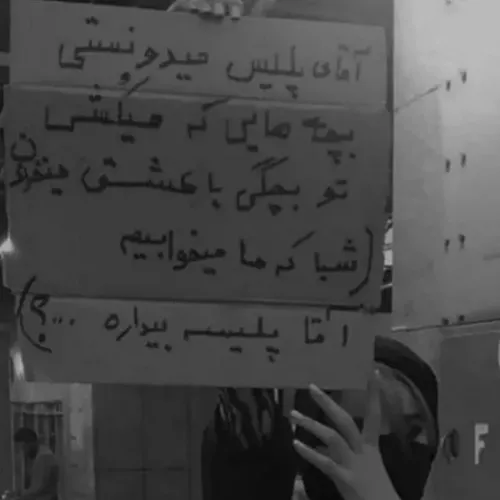 آقای پلیس میدونستی
بچه هایی که میکشی
تو بچگی با عشق میخوندن
(شبا که ما میخوابیم
آقا پلیسه بیداره ...؟)
F